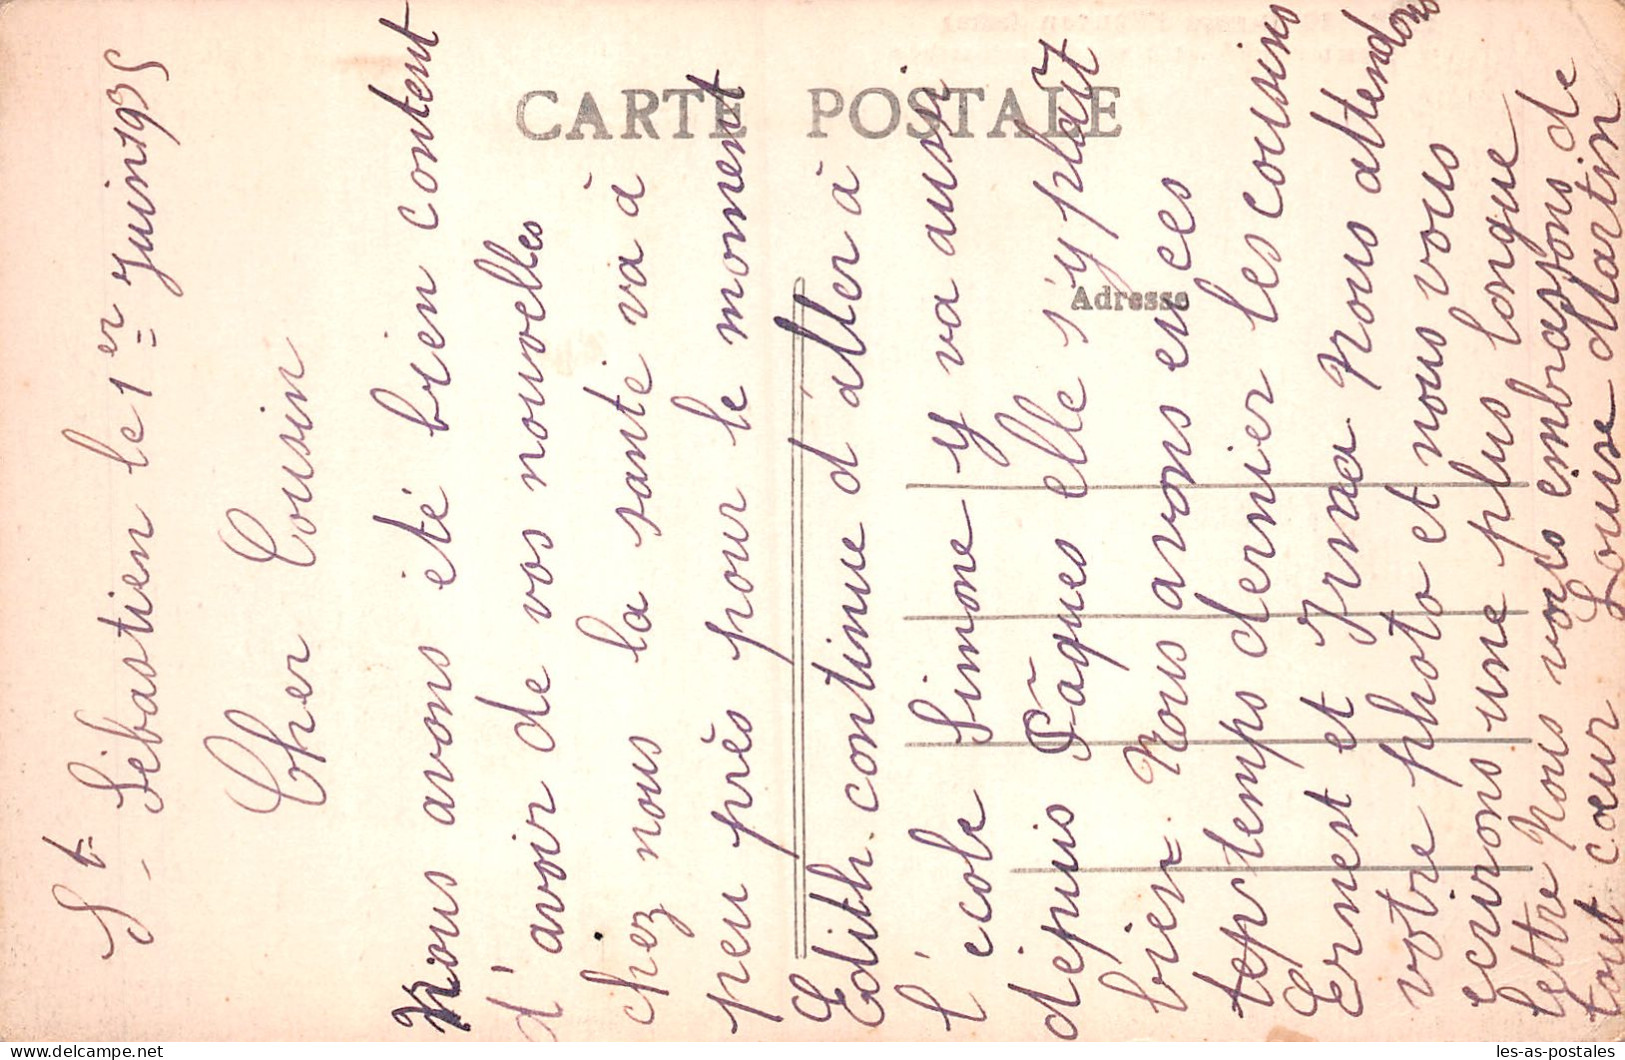 CARTE POSTALE
Adresse
St Sébastien le 1er Juin 1935
Cher Cousin
Nous avons été bien content
d'avoir de vos nouvelles
chez nous la sante va à
peu près pour le moment
Edith. continue d'aller à
l'école Simone y va aussi
dépuis Pâques elle s'y plait
bien. Nous avons eu ces
tep temps dernier les cousins
Ernest et Irma Nous attendons
votre photo et nous vous
ecirons une plus longue
lettre Nous vous embrassons de
tout cœur Louise Martin
les-as-postales